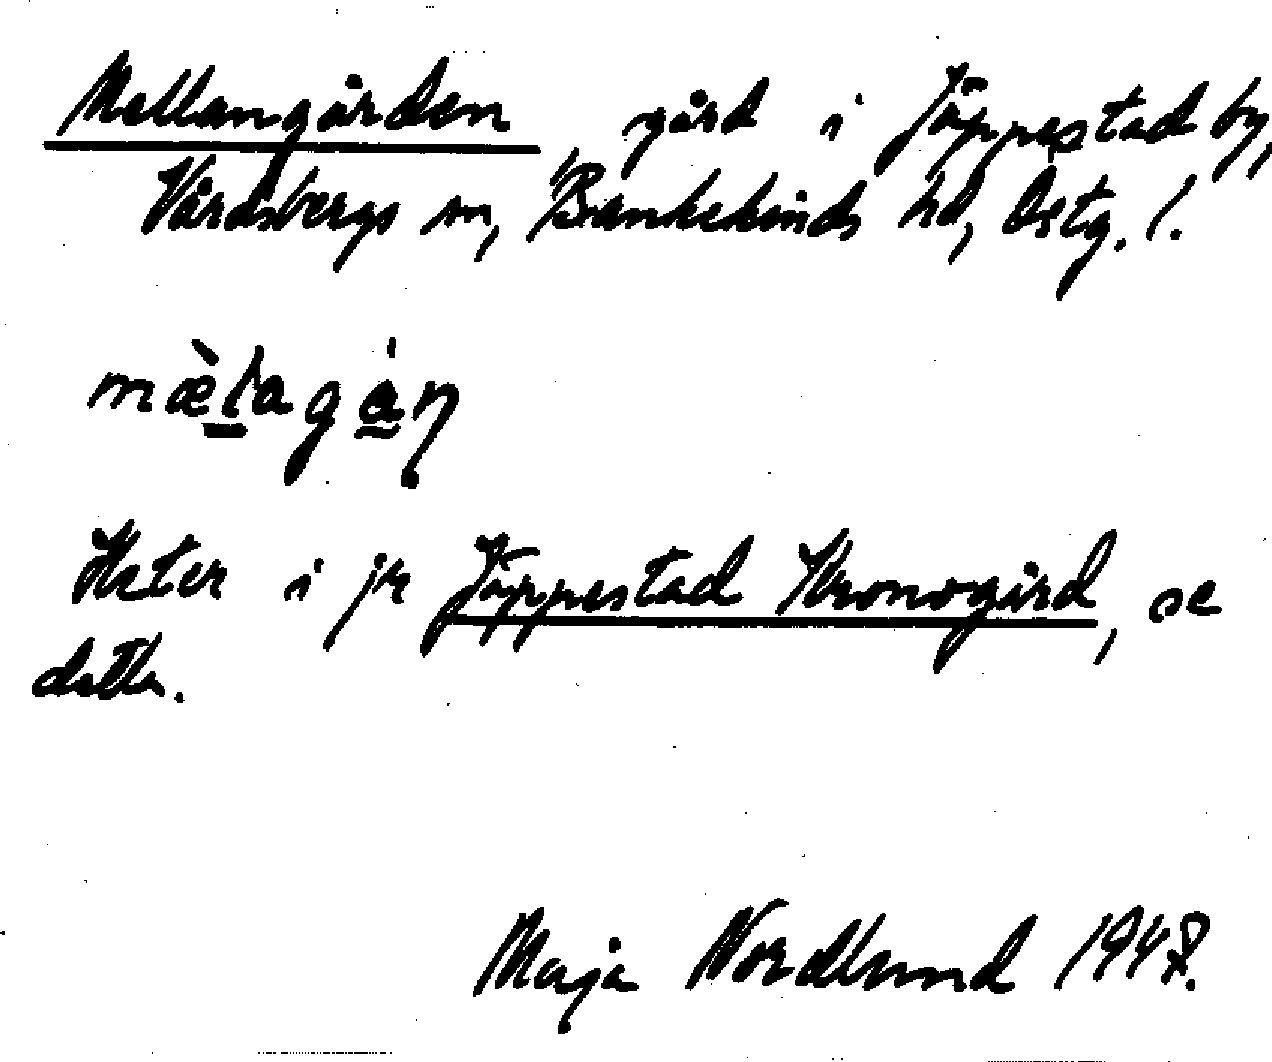 Mellangården gård i Jäppestad by,
Vårdsbergs sn, Bankekinds hd, Östg. l.
mæ̀lagån
Heter i jr Jäppestad Kronogård, se
detta.
Maja Nordlund 1947.